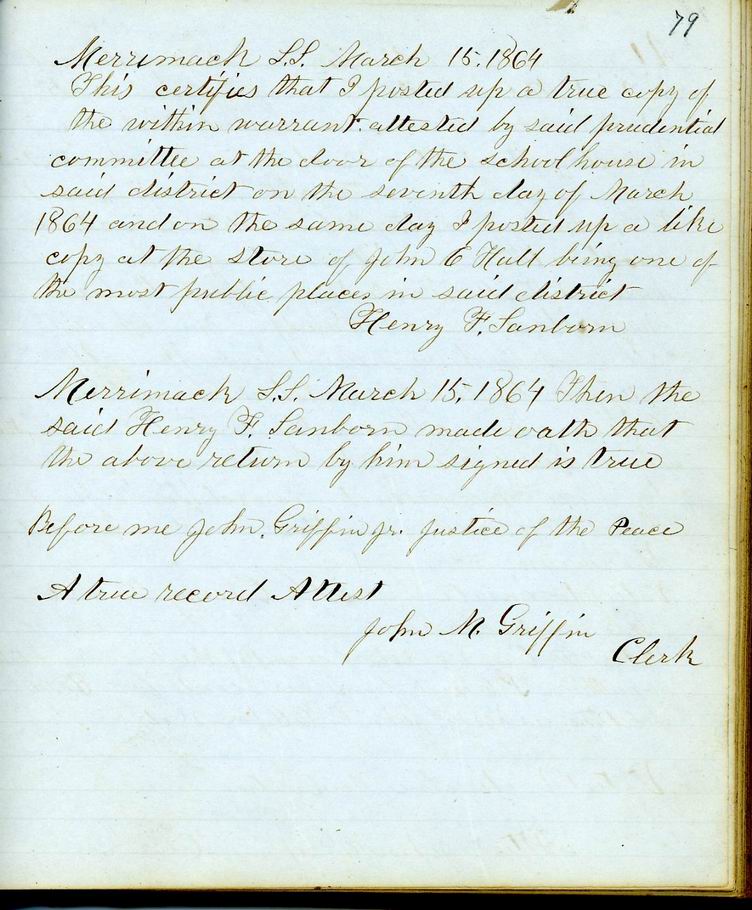 79
Merrimack S.S. March 15. 1864
This certifies that I posted up a true copy of
the within warrant attested by said prudential
committee at the door of the school house in
said district on the seventh day of March
1864 and on the same day I posted up a like
copy at the store of John C Hall being one of
the most public places in said district
Henry F. Sanborn
Merrimack S.S. March 15, 1864 Then the
said Henry F. Sanborn made oath that
the above return by him signed is true
Before me John Griffin Jr. Justice of the Peace
A true record Attest
John M. Griffin
Clerk